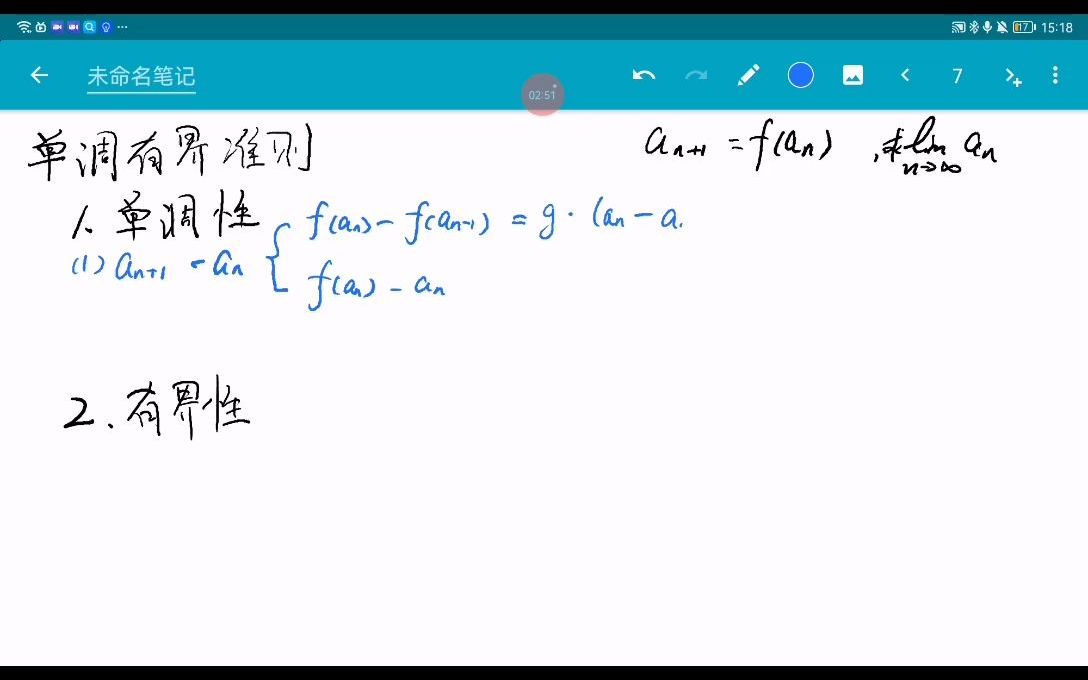 17 15:18
未命名笔记
02:51
7
单调有界准则
a_{n+1} = f(a_n) , 求 lim_{n→∞} a_n
1. 单调性
f(a_n) - f(a_{n-1}) = g · (a_n - a
(1) a_{n+1} - a_n {
f(a_n) - a_n
2. 有界性